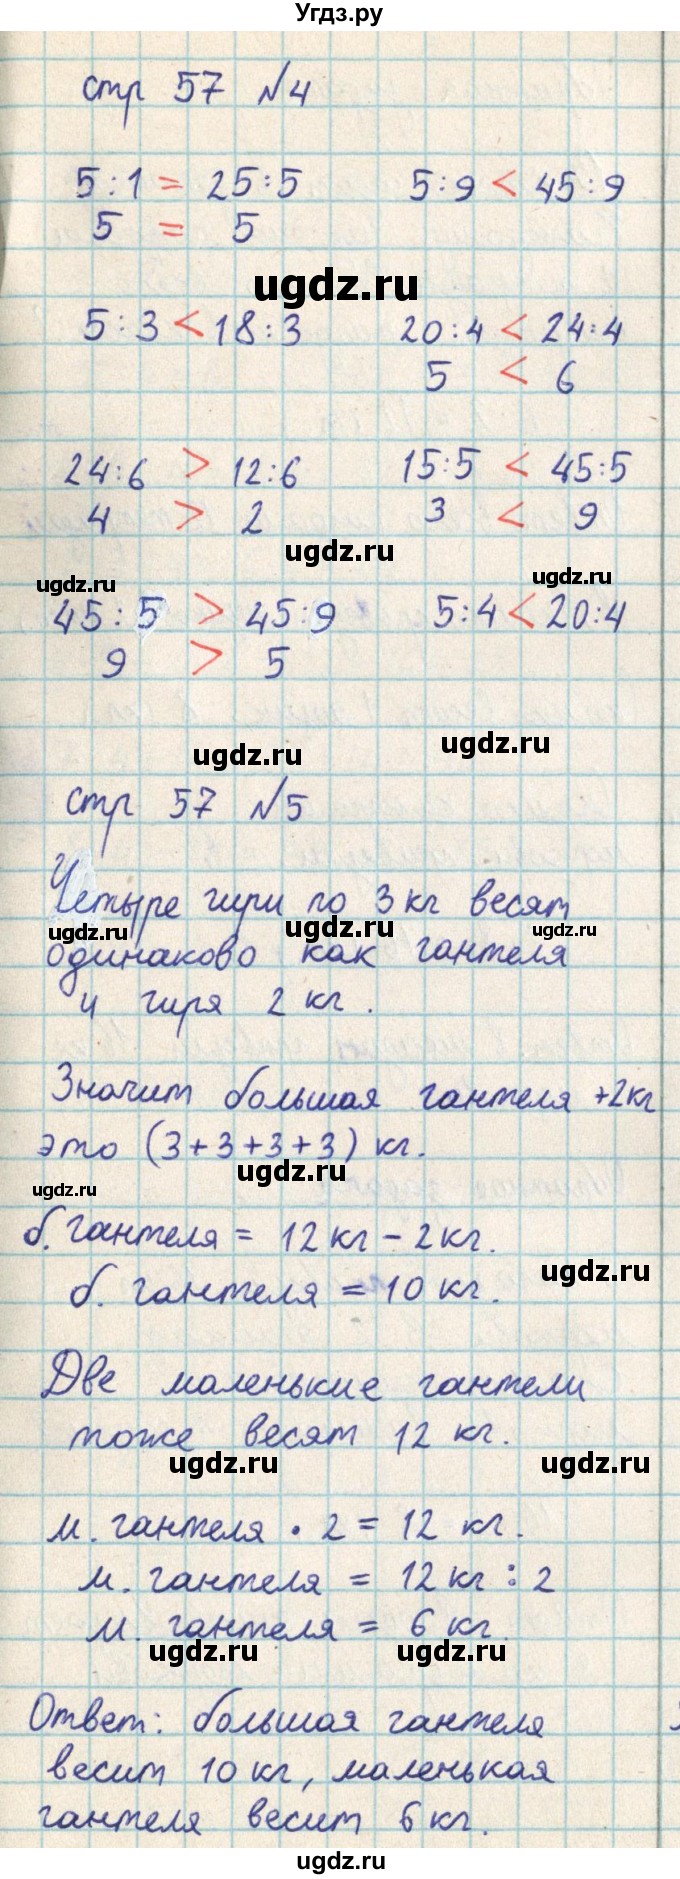 Угдз.ру
стр 57 №4
5:1 = 25:5 5:9 < 45:9
5 = 5
ugdz.ru
5:3 < 18:3 20:4 < 24:4
5 < 6
24:6 > 12:6 15:5 < 45:5
4 > 2 3 < 9
ugdz.ru
ugdz.ru ugdz.ru
45:5 > 45:9 5:4 < 20:4
9 > 5
ugdz.ru ugdz.ru
стр 57 №5
Четыре гири по 3 кг весят
ugdz.ru ugdz.ru ugdz.ru
одинаково как гантеля
и гиря 2 кг.
Значит большая гантеля +2кг
это (3+3+3+3) кг.
ugdz.ru
ugdz.ru
б. гантеля = 12 кг - 2 кг.
ugdz.ru
б. гантеля = 10 кг.
Две маленькие гантели
тоже весят 12 кг.
ugdz.ru ugdz.ru
м. гантеля · 2 = 12 кг.
м. гантеля = 12 кг : 2
м. гантеля = 6 кг.
ugdz.ru ugdz.ru
Ответ: большая гантеля
весит 10 кг, маленькая
гантеля весит 6 кг.
ugdz.ru